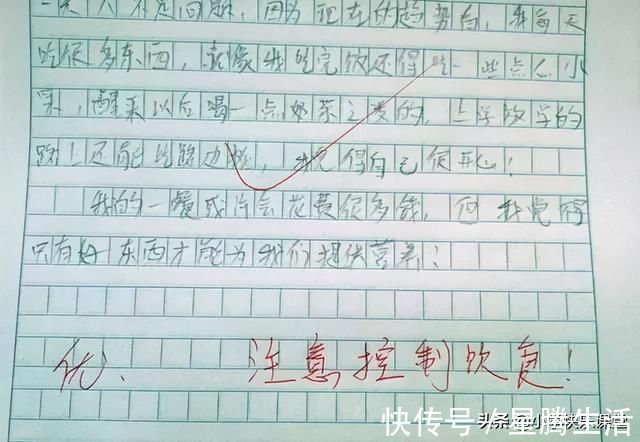 一天八不是问题，因为现在的趋势的，我每天
吃很多东西，就像我吃完饭还得吃一些点心小
果，醒来以后喝一点奶茶之类的，上学放学的
路上还能吃路边摊，我觉得自己很开心！
我的一餐或许会花费很多钱，但我觉得
只有好东西才能为我们提供营养？
优、 注意控制饮食！
快传号/星腾生活